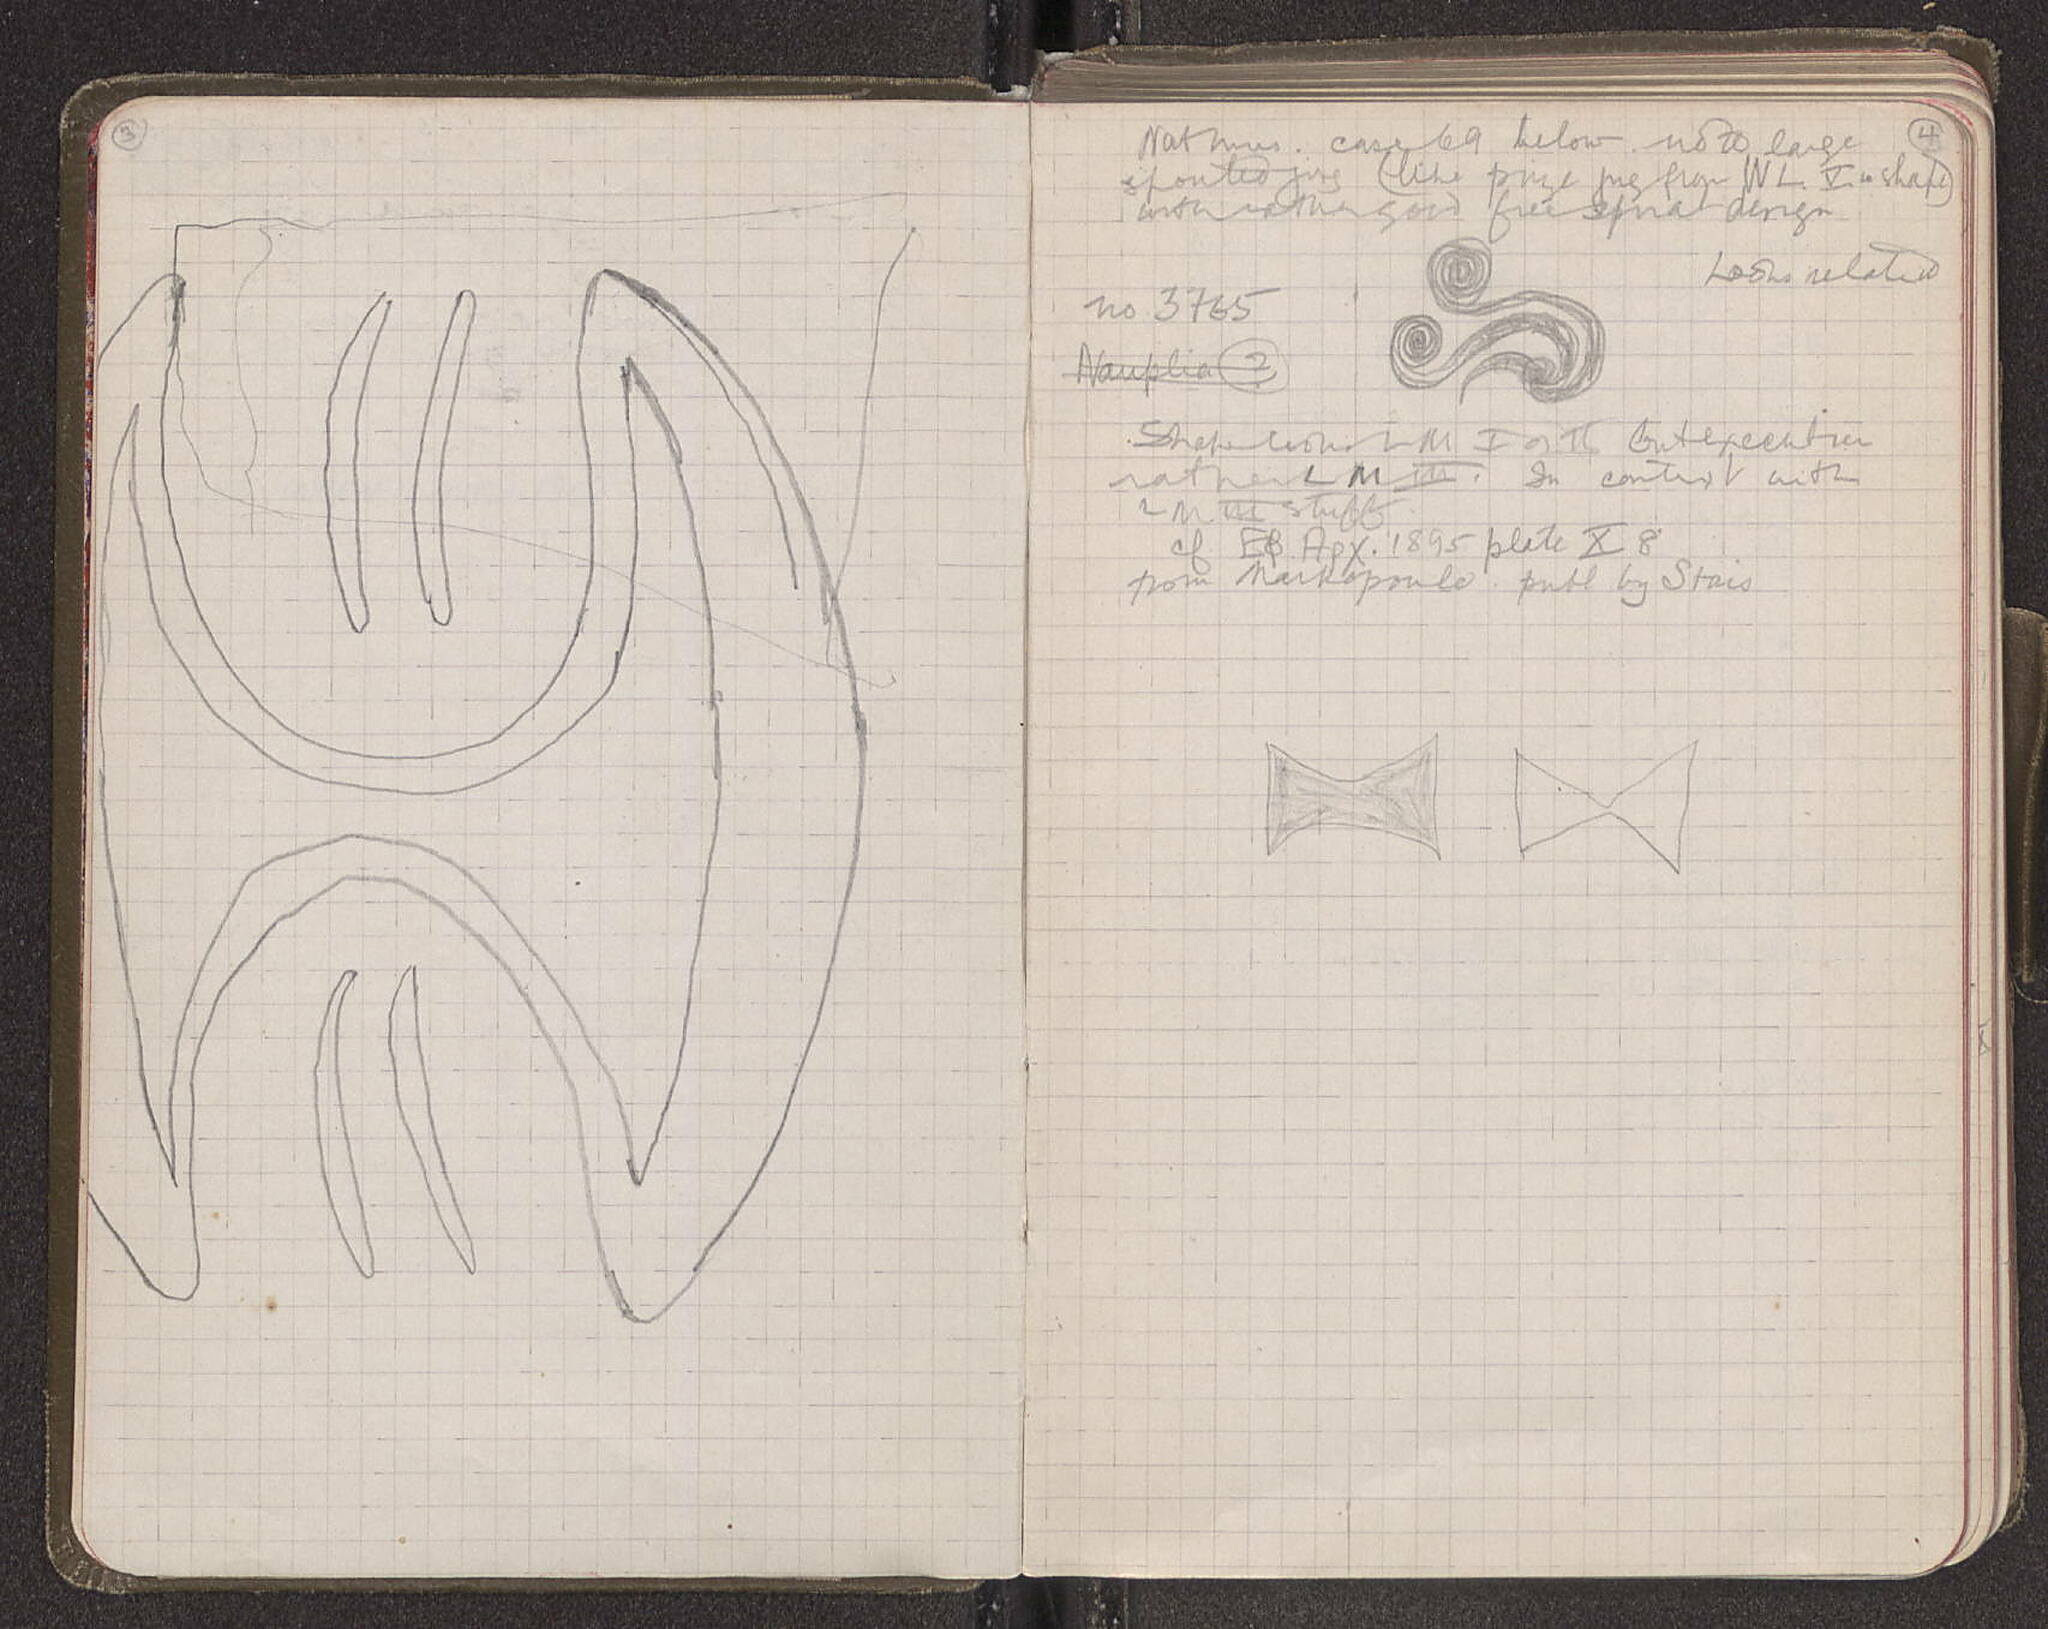 3
4
Nat Mus. case 69 below. no 20 large
spouted jug (like prize jug from W L. V in shape)
with rather good free spiral design
Looks related
no 3765
Nauplia ?
Shape looks L M I or II but execution
rather L M III. In context with
L M III stuff.
cf Eφ Αρχ. 1895 plate X 8
from Markopoulo publ by Stais